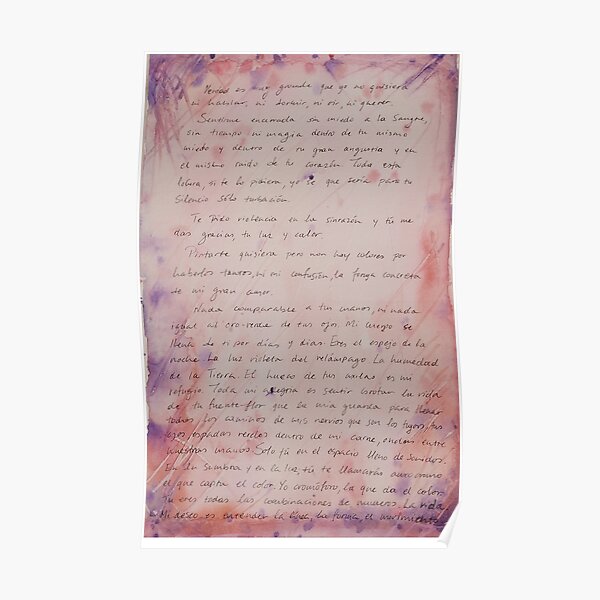 Verdad es muy grande que yo no quisiera
ni hablar, ni dormir, ni oir, ni querer.
Sentirme encerrada sin miedo a la sangre,
sin tiempo ni magia dentro de tu mismo
miedo y dentro de tu gran angustia y en
el mismo ruido de tu corazón Toda esta
locura, si te lo pidiera, yo se que sería para tu
silencio sólo turbación.
Te pido violencia en la sinrazón y tú me
das gracias, tu luz y calor.
Pintarte quisiera pero non hay colores por
haberlos tantos, ni mi confusión, la forma concreta
de mi gran amor.
Nada comparable a tus manos, ni nada
igual al oro-verde de tus ojos. Mi cuerpo se
llena de ti por días y días. Eres el espejo de la
noche. La luz violeta del relámpago. La humedad
de la Tierra. El hueco de tus axilas es mi
refugio. Toda mi alegria es sentir brotar la vida
de tu fuente-flor que la mia guarda para llenar
todos los caminos de mis nervios que son los tuyos, tus
ojos, espadas verdes dentro de mi carne, ondas entre
nuestras manos. Solo tú en el espacio lleno de sonidos.
En la sombra y en la luz, tú te llamarás auxocromo
el que capta el color. Yo cromóforo, la que da el color.
Tú eres todas las combinaciones de numeros. La vida.
Mi deseo es entender la línea, la forma, el movimiento.